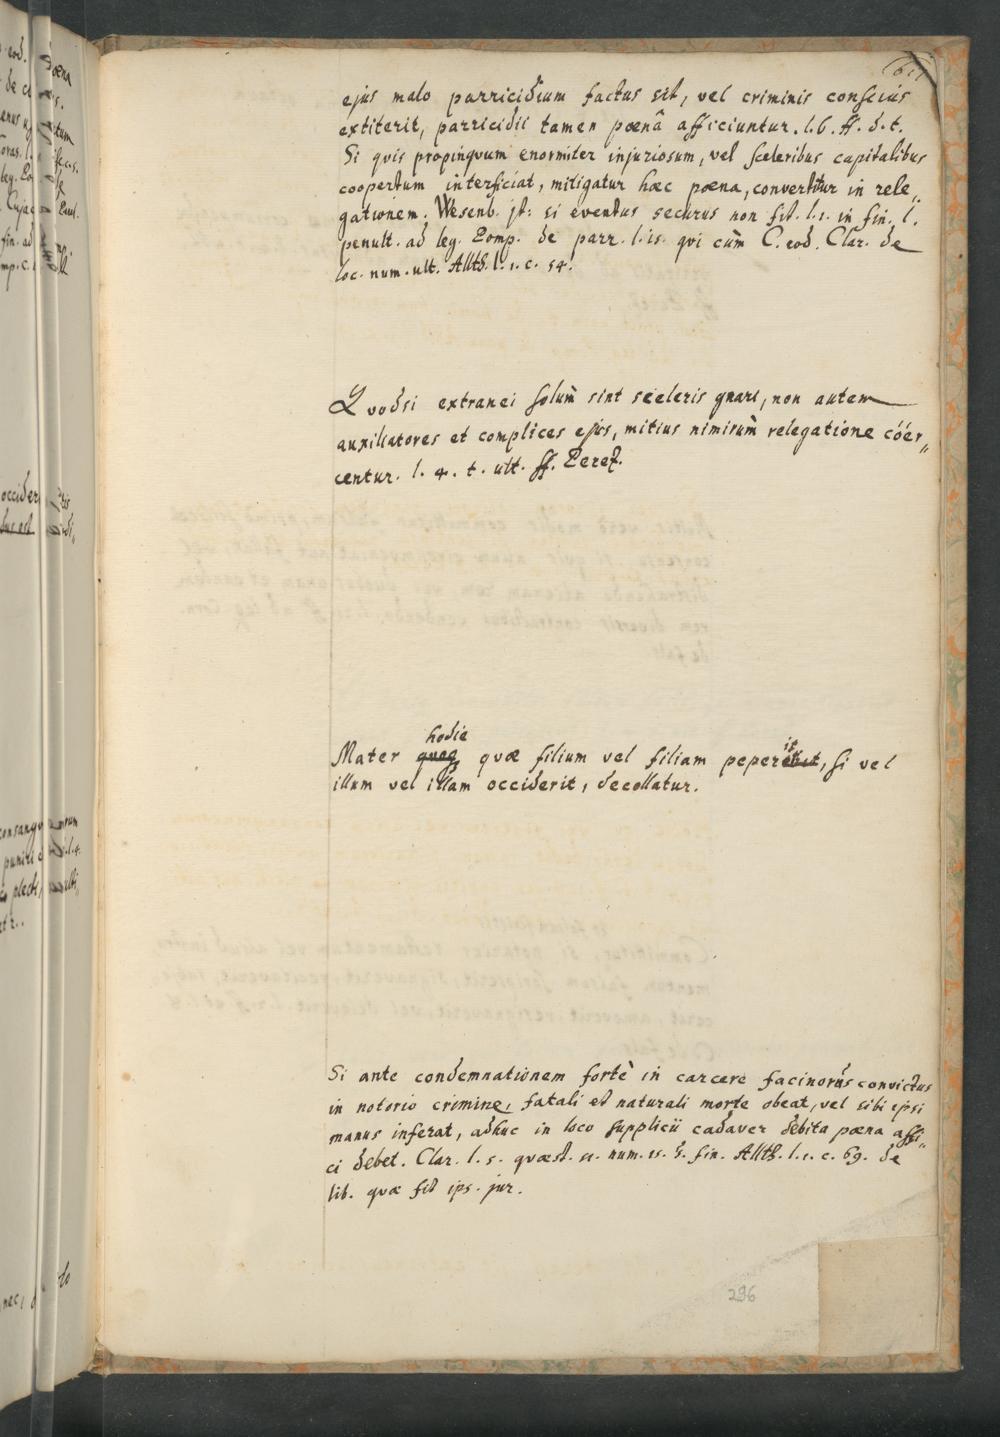 ejus malo parricidium factus sit, vel criminis conscius
extiterit, parricidii tamen pœnâ afficiuntur. l. 6. ff. d. t.
Si quis propinquum enormiter injuriosum, vel sceleribus capitalibus
coopertum interficiat, mitigatur hæc pœna, convertitur in rele„
gationem. Wesenb. jt: si eventus secutus non sit. l. 1. in fin. l.
penult. ad leg. Pomp. de parr. l. 15. qui cùm C. eod. Clar. de
loc. num. ult. Allth. l. 1. c. 54.
Quodsi extranei solùm sint sceleris gnari, non autem
auxiliatores et complices ejus, mitius nimirùm relegatione cóér„
centur. l. 4. t. ult. ff. Perez.
hodie
Mater quæ filium vel filiam peperit, si vel
illum vel illam occiderit, decollatur.
Si ante condemnationem fortè in carcere facinorus convictus
in notorio crimine, fatali et naturali morte obeat, vel sibi ipsi
manus inferat, adhuc in loco supplicii cadaver debita pœna affi„
ci debet. Clar. l. 5. quæst. 51. num. 15. §. fin. Allth. l. 1. c. 69. de
lib. quæ sit ips. jur.
296